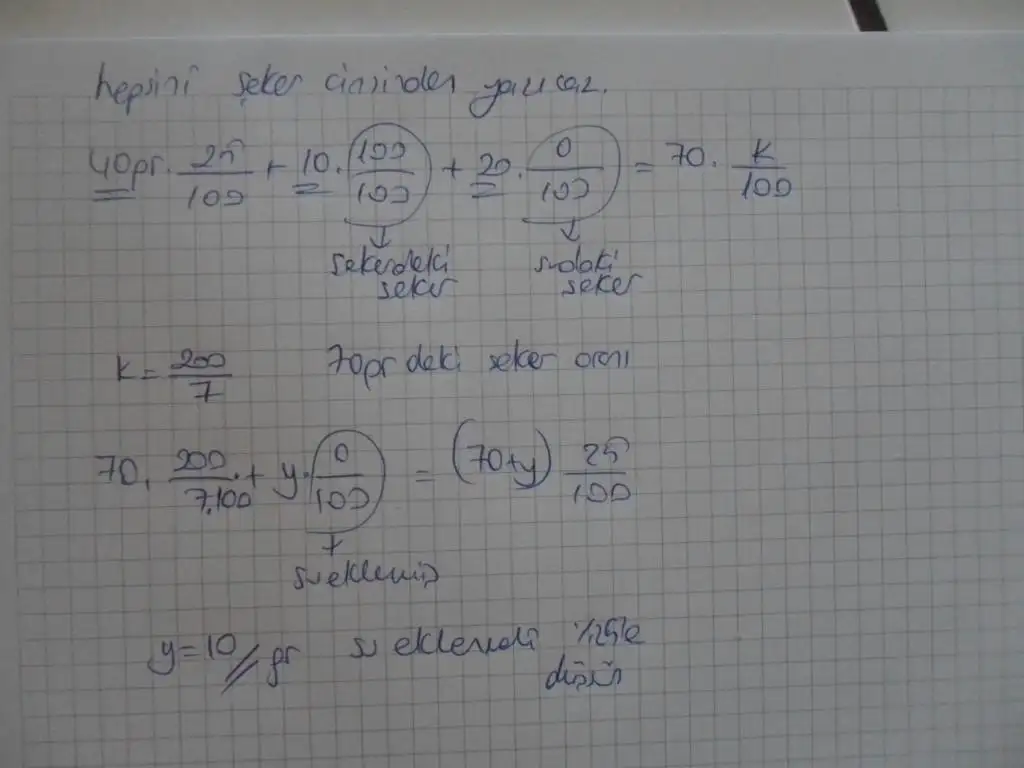 hepsini şeker cinsinden yazıcaz.
40gr. 25/100 + 10. 100/100 + 20. 0/100 = 70. k/100
şekerdeki şeker sudaki şeker
k = 200/7 70gr deki şeker oranı
70. 200/7.100 + y. 0/100 = (70+y) 25/100
su eklemiş
y = 10 // gr su eklemeli %25'e
düşsün